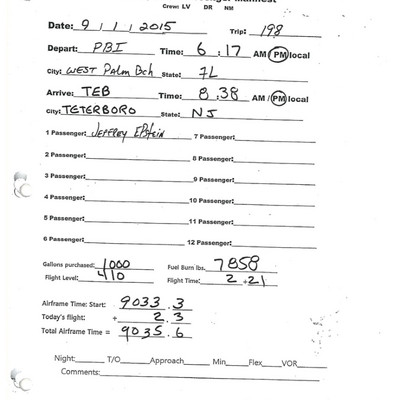 Crew: LV DR NM
Date: 9 / 1 / 2015 Trip: 198
Depart: PBI Time: 6 : 17 AM PM local
City: WEST PALM Bch State: FL
Arrive: TEB Time: 8 : 38 AM / PM local
City: TETERBORO State: NJ
1 Passenger: JEFFREY EPStEIN 7 Passenger:
2 Passenger: 8 Passenger:
3 Passenger: 9 Passenger:
4 Passenger: 10 Passenger:
5 Passenger: 11 Passenger:
6 Passenger: 12 Passenger:
Gallons purchased: 1000 Fuel Burn lbs. 7858
Flight Level: 410 Flight Time: 2 : 21
Airframe Time: Start: 9033 . 3
Today's flight: + 2 . 3
Total Airframe Time = 9035 . 6
Night: T/O Approach Min Flex VOR
Comments: